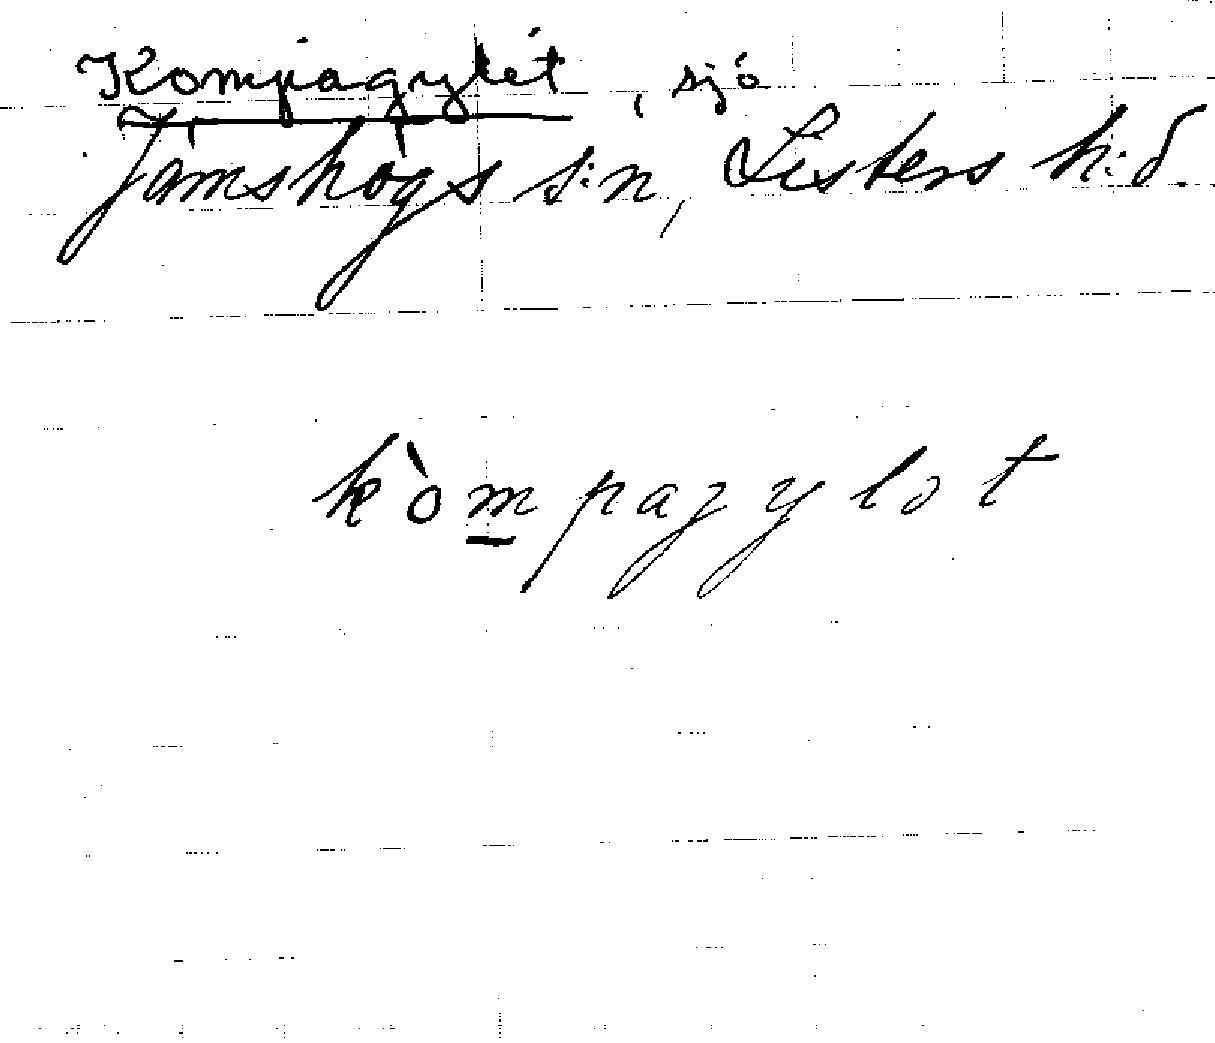 Kompagylét, sjö
Jämshögs s:n, Listers h:d.
kòmpagylət